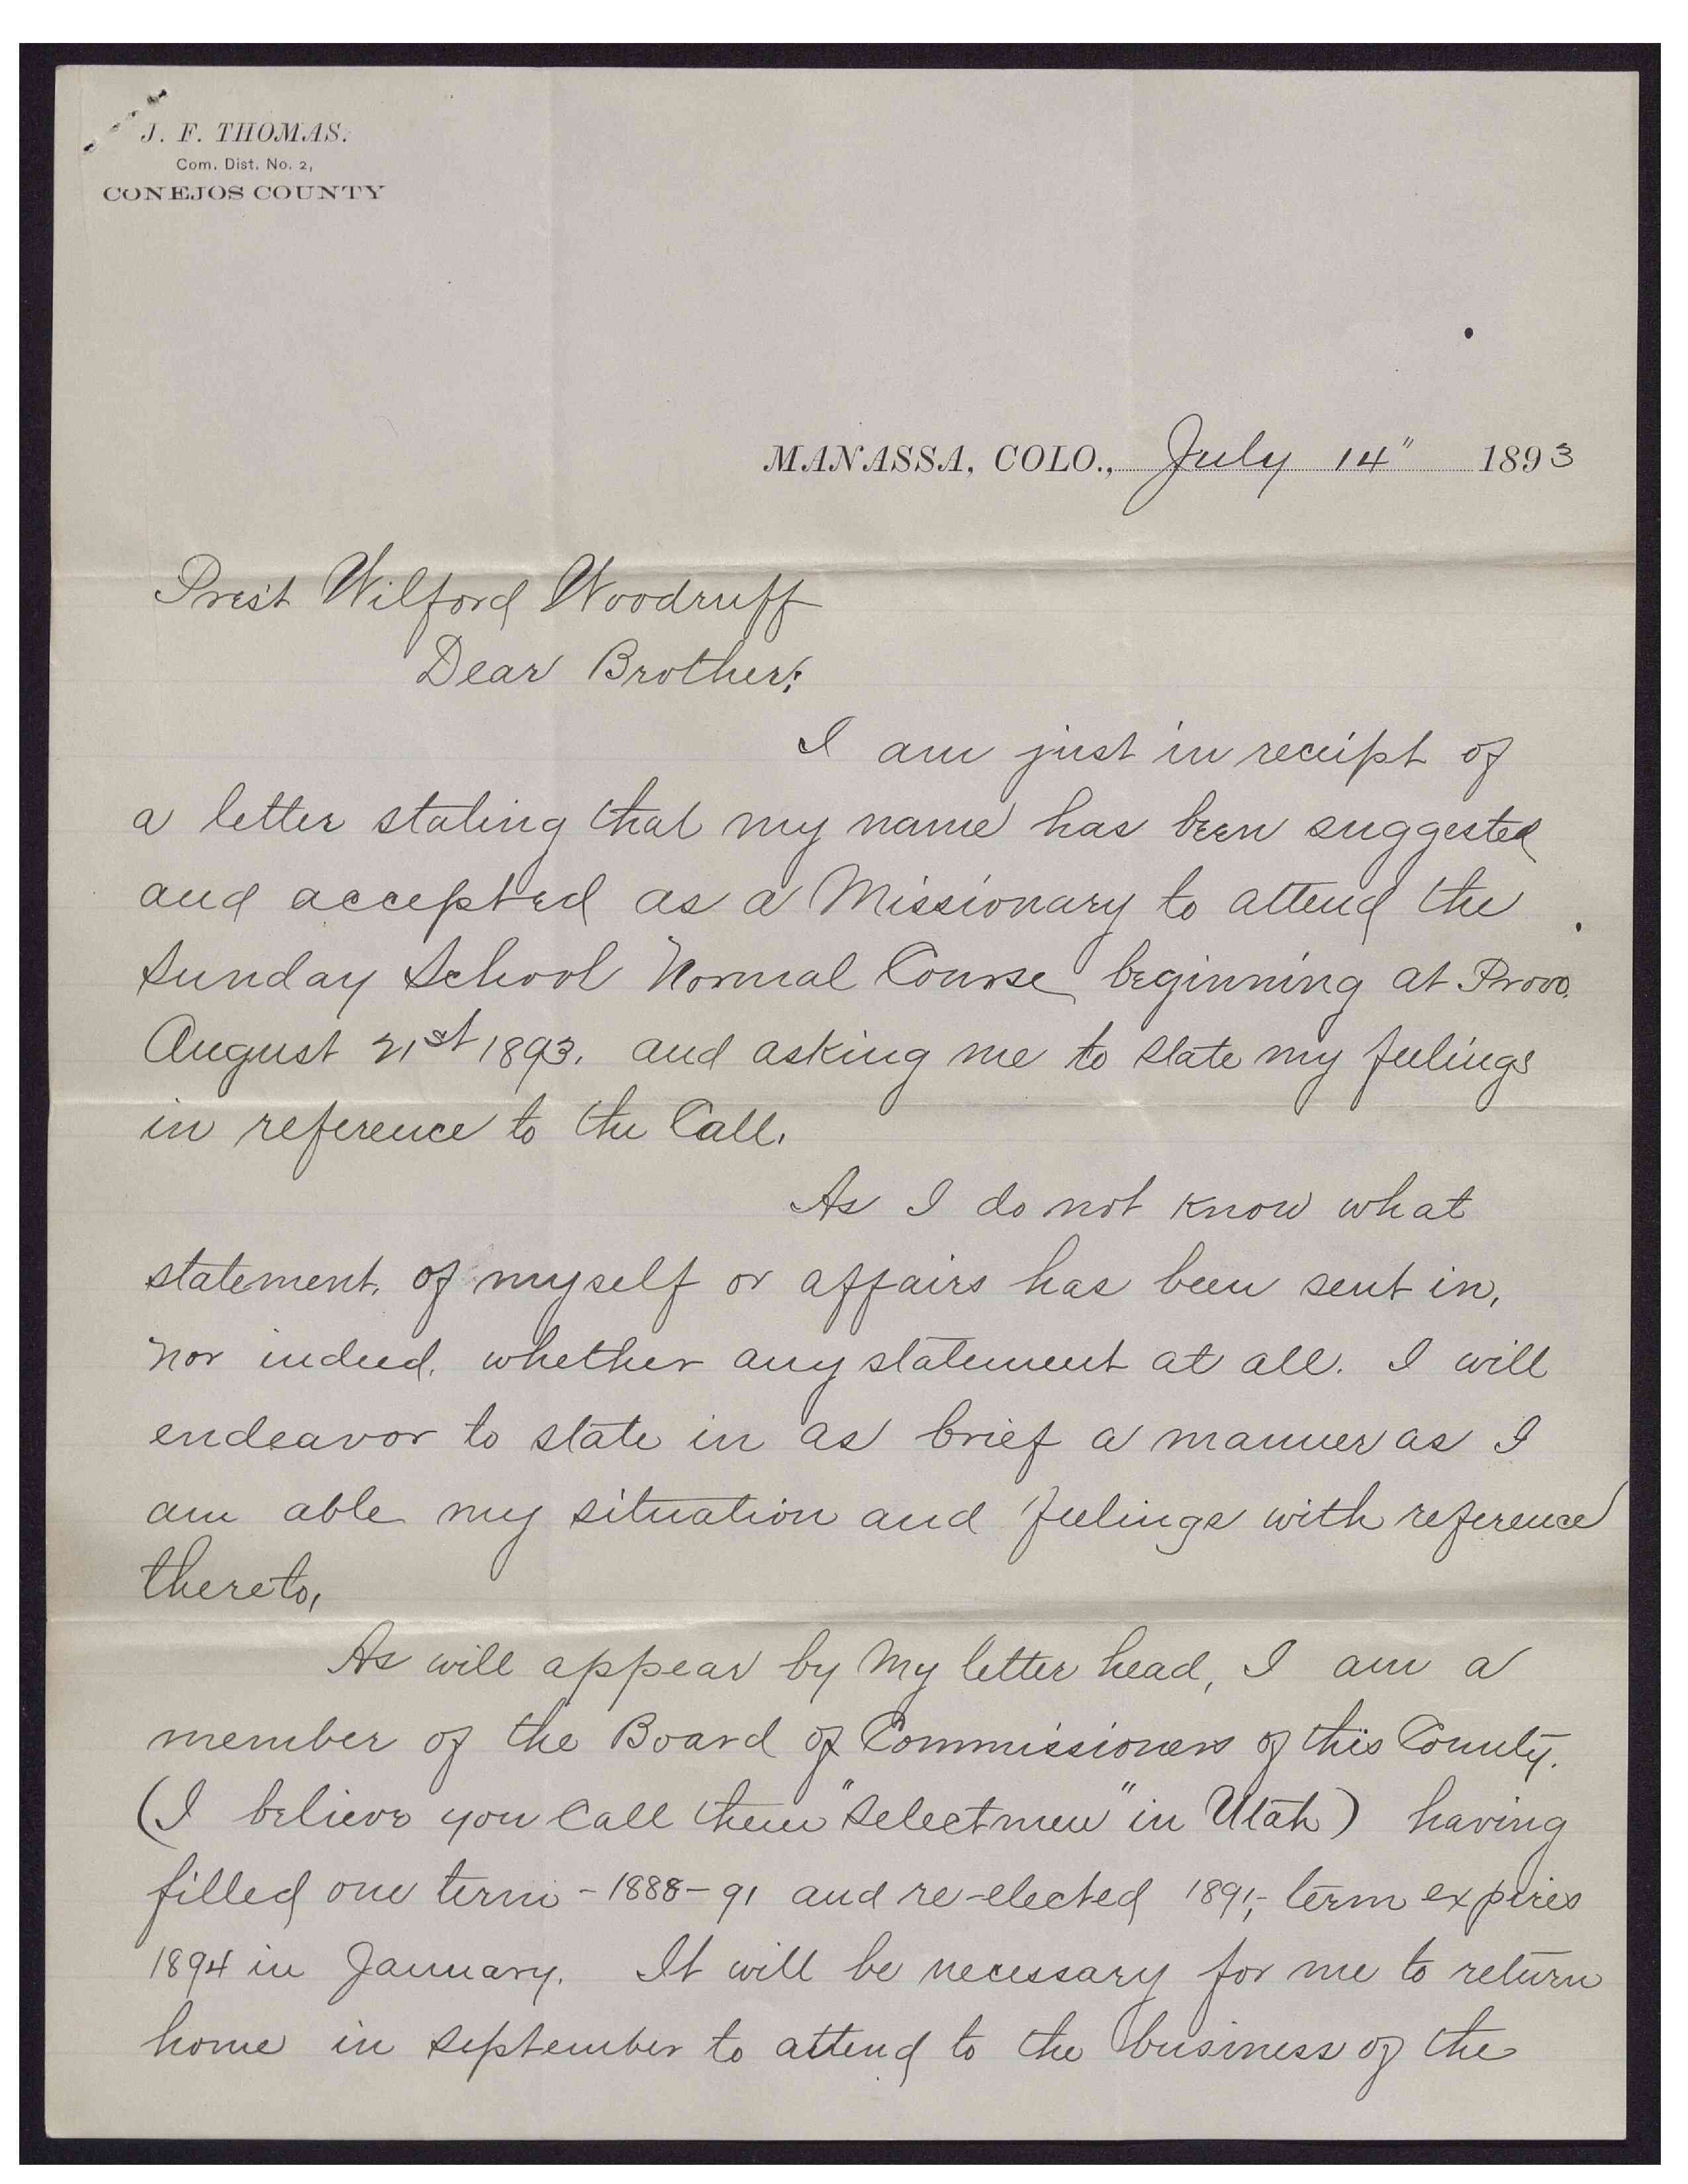 J. F. THOMAS.
Com. Dist. No. 2,
CONEJOS COUNTY
MANASSA, COLO., July 14" 1893
Prest Wilford Woodruff
Dear Brother;
I am just in receipt of
a letter stating that my name has been suggested
and accepted as a Missionary to attend the
Sunday School Normal Course beginning at Provo.
August 21st 1893. and asking me to state my feelings
in reference to the Call.
As I do not know what
statement, of myself or affairs has been sent in,
nor indeed, whether any statement at all. I will
endeavor to state in as brief a manner as I
am able my situation and feelings with reference
thereto,
As will appear by My letter head, I am a
member of the Board of Commissioners of this County.
(I believe you Call them "Selectmen" in Utah) having
filled one term - 1888-91 and re-elected 1891,- term expires
1894 in January. It will be necessary for me to return
home in September to attend to the business of the